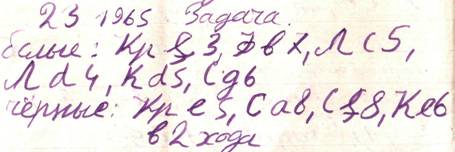 23 1965 Задача.
белые: Кр f3, Фв7, Лс5,
Лd4, Кd5, Сg6
чёрные: Кр е5, Са8, Сf8, Ке6
в 2 хода